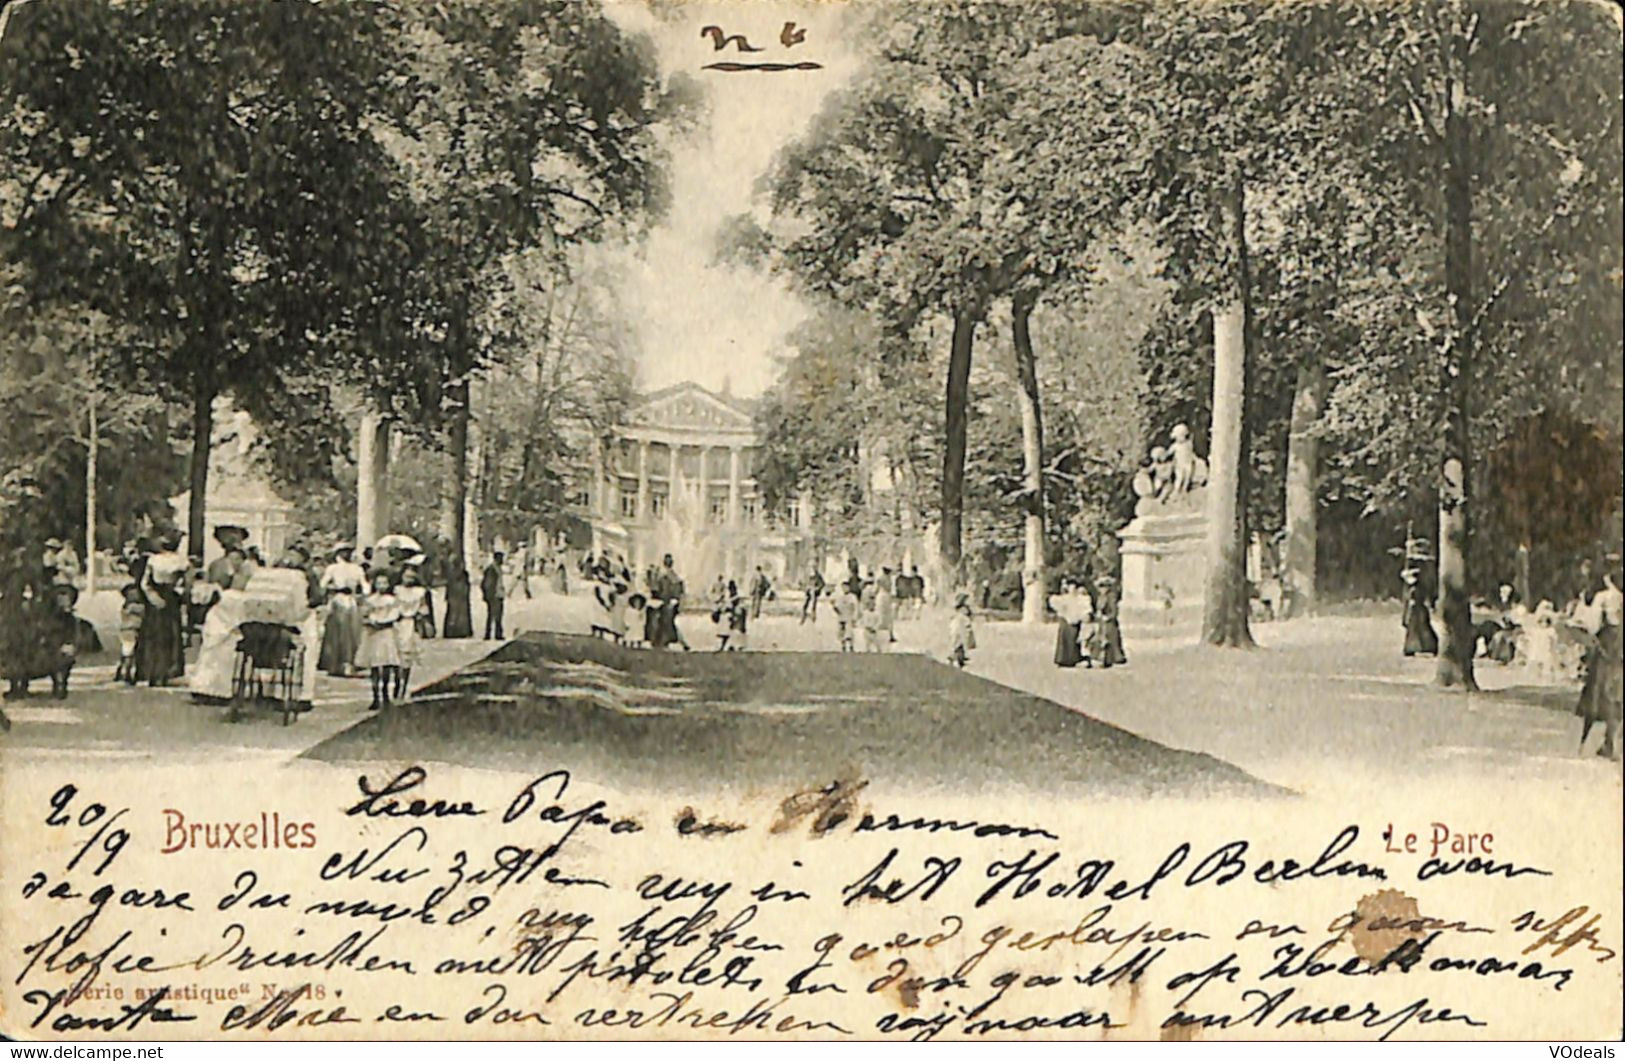 n 6
20/9
Bruxelles
Lieve Papa en Herman
Le Parc
Nu zitten wij in het Hottel Berlin aan
la gare du nord, wij hebben goed geslapen en gaan
Kofie drinken met pistolets en dan ga ik op zoek naar
"Série artistique" No. 18.
Tante en dan vertrekken wij naar antwerpen
VOdeals